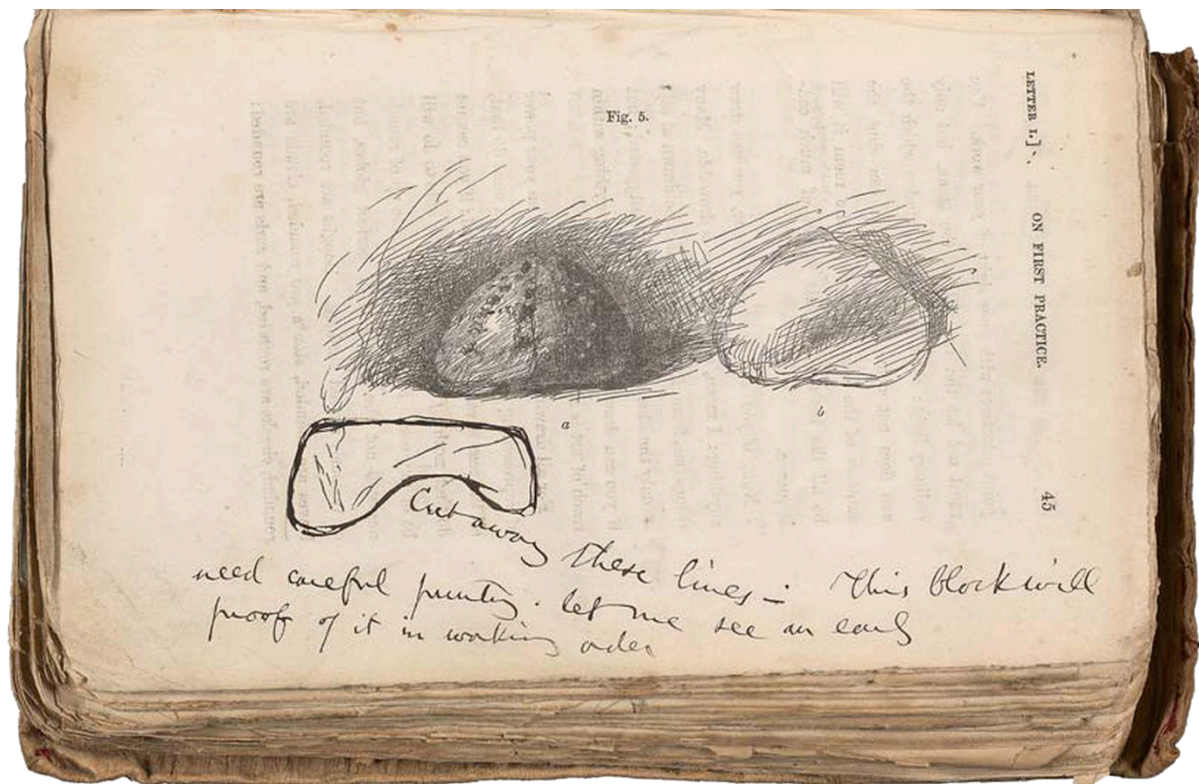 LETTER I.] ON FIRST PRACTICE. 45
Fig. 5.
a
b
Cut away these lines – This block will
need careful printing. let me see an early
proof of it in working order